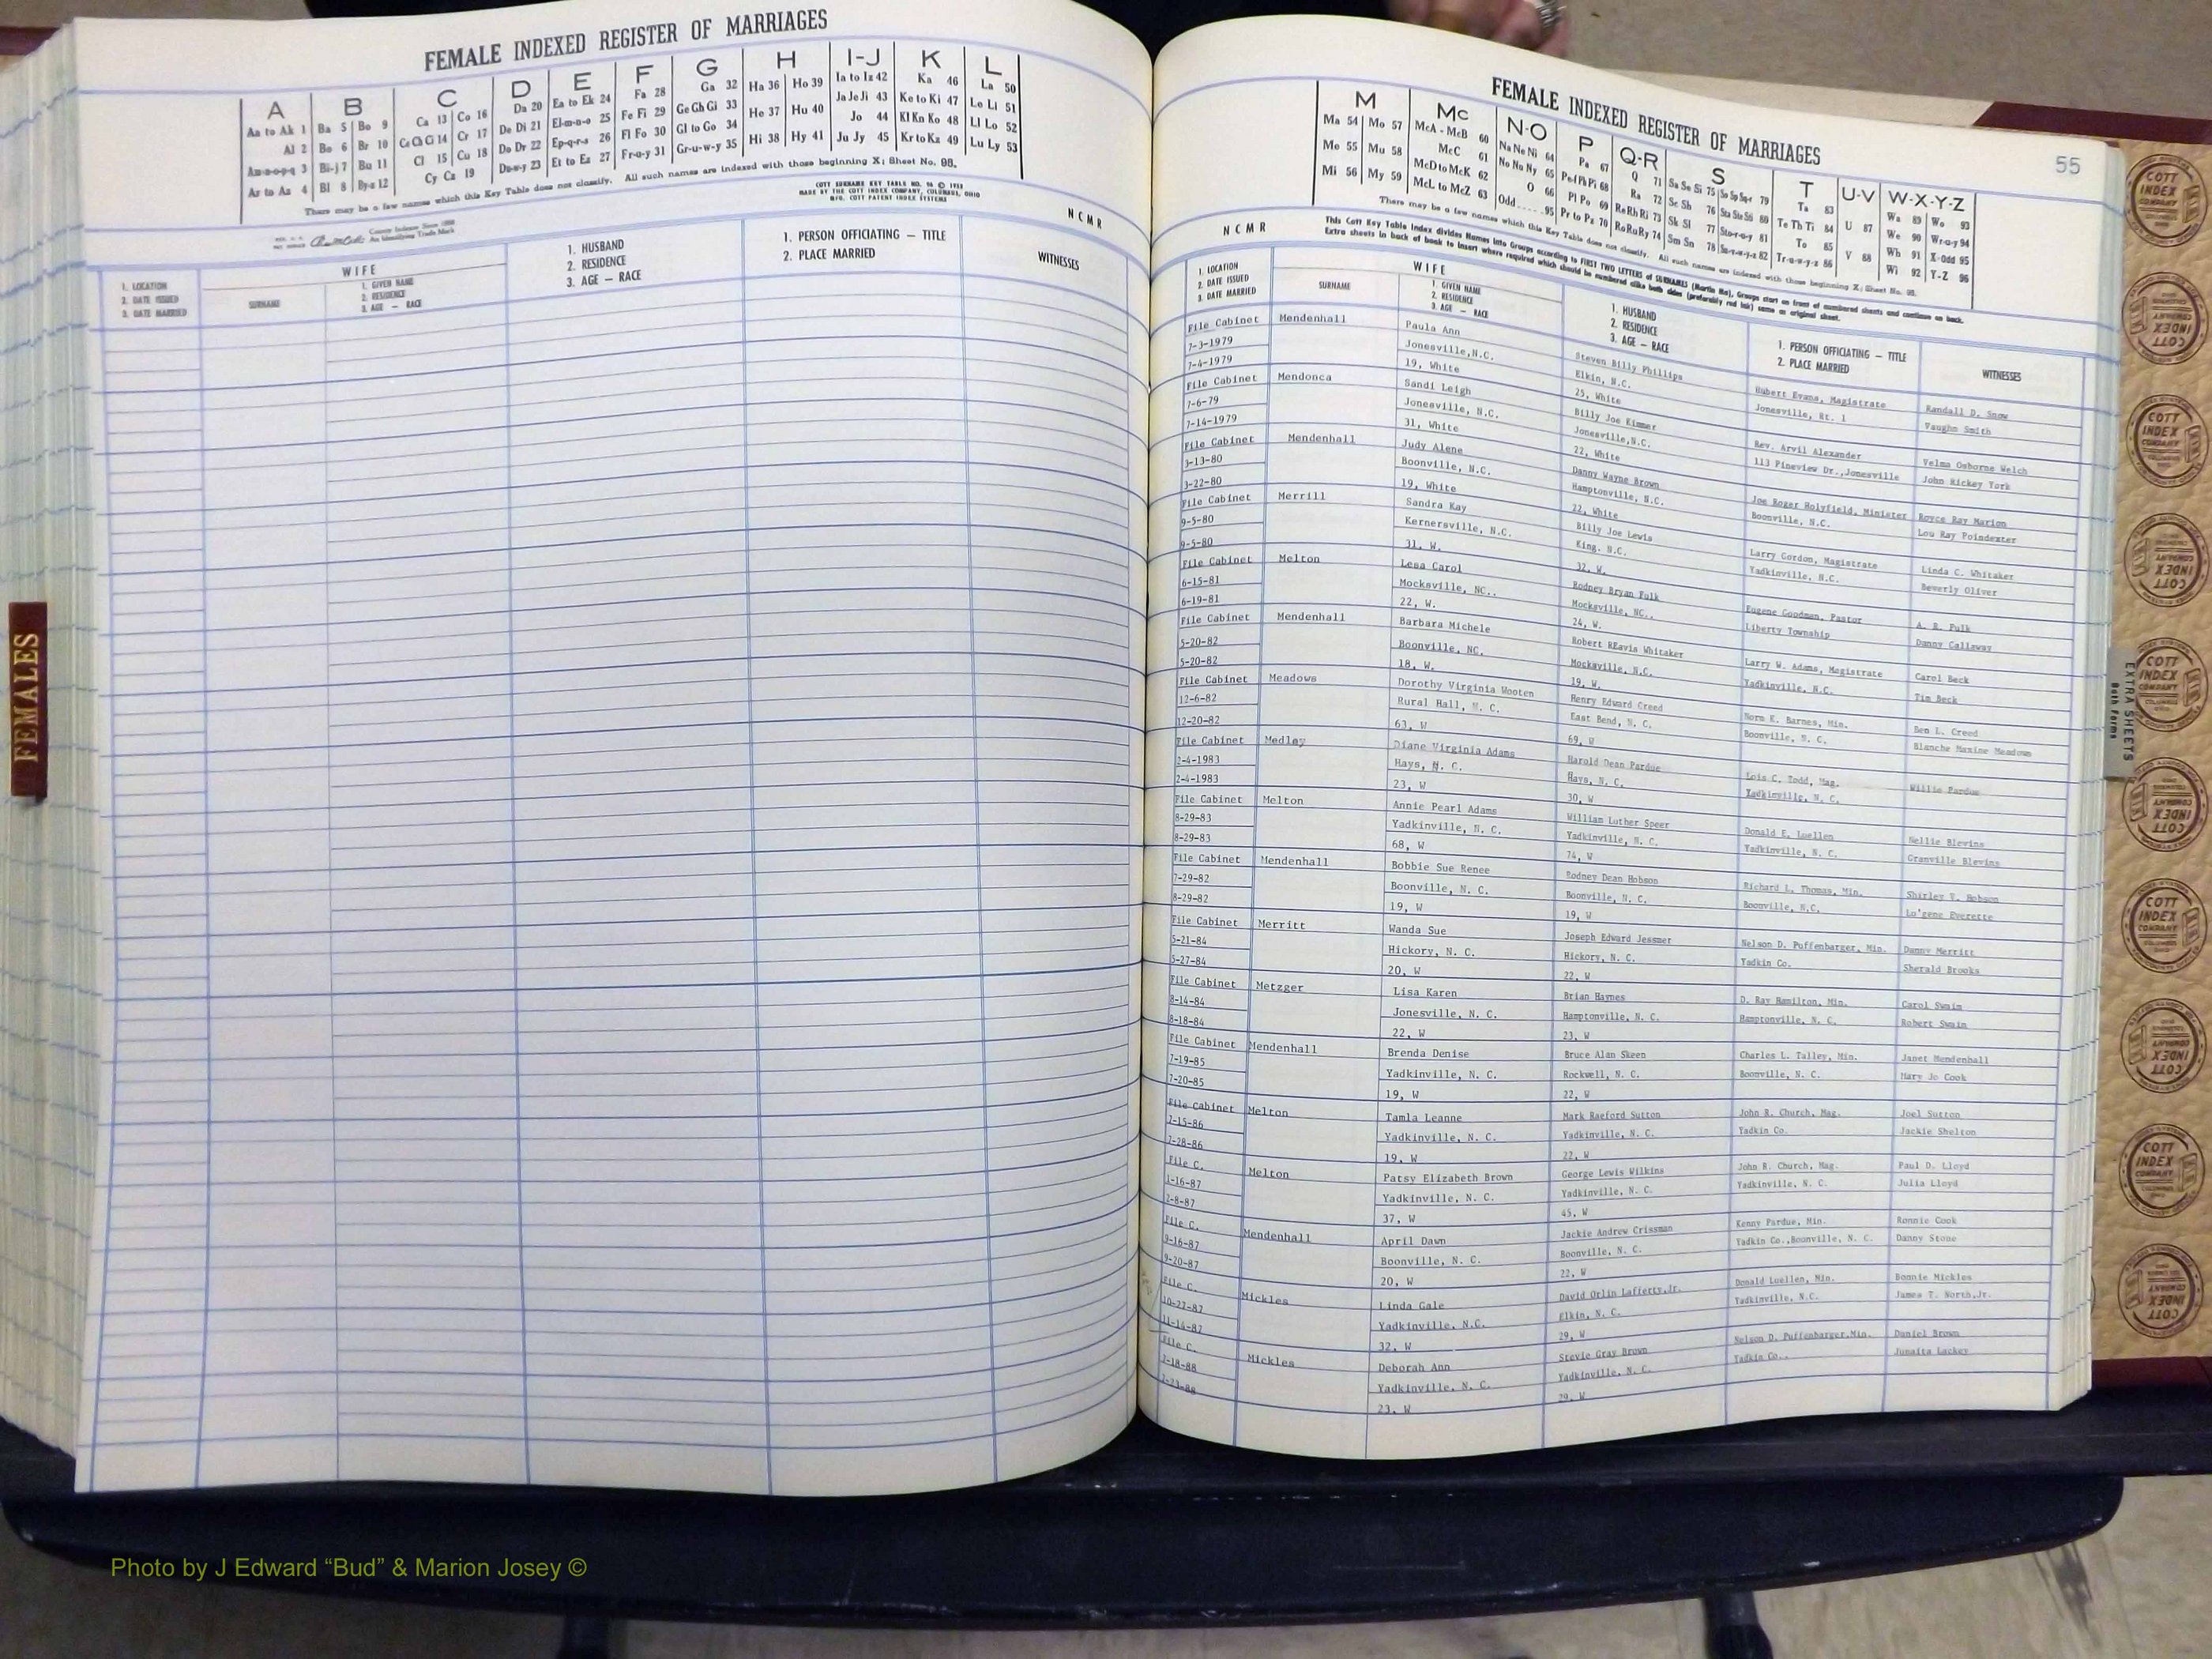 FEMALE INDEXED REGISTER OF MARRIAGES
A B C D E F G H I-J K L
Aa to Ak 1 Ba 5 Bo 9 Ca 13 Co 16 Da 20 Ea to Ek 24 Fa 28 Ga 32 Ha 36 Ho 39 Ia to Iz 42 Ka 46 La 50
Al 2 Be 6 Br 10 Ce Ch Ci 14 Cr 17 De Di 21 El-m-n-o 25 Fe Fi 29 Ge Gh Gi 33 He 37 Hu 40 Ja Je Ji 43 Ke to Ki 47 Le Li 51
Am-n-o-p-q 3 Bi-j 7 Bu 11 Cl 15 Cu 18 Do Dr 22 Ep-q-r-s 26 Fl Fo 30 Gl to Go 34 Hi 38 Hy 41 Jo 44 Kl Kn Ko 48 Ll Lo 52
Ar to Az 4 Bl 8 By-z 12 Cy Cz 19 Du-w-y 23 Et to Ez 27 Fr-u-y 31 Gr-u-w-y 35 Ju Jy 45 Kr to Kz 49 Lu Ly 53
There may be a few names which this Key Table does not classify. All such names are indexed with those beginning X; Sheet No. 98.
MADE BY THE COTT INDEX COMPANY, COLUMBUS, OHIO
MFG. COTT PATENT INDEX SYSTEMS
County Indexes Since 1888
An Identifying Trade Mark
NCMR
1. LOCATION
2. DATE ISSUED
3. DATE MARRIED
WIFE
SURNAME
1. GIVEN NAME
2. RESIDENCE
3. AGE — RACE
1. HUSBAND
2. RESIDENCE
3. AGE — RACE
1. PERSON OFFICIATING — TITLE
2. PLACE MARRIED
WITNESSES
FEMALES
FEMALE INDEXED REGISTER OF MARRIAGES
55
M Mc N-O P Q-R S T U-V W-X-Y-Z
Ma 54 Mo 57 McA - McB 60 Na Ne Ni 64 Pa 67 Q 71 Sa Se Si 75 So Sp Sq-r 79 Ta 83 U 87 Wa 89 Wo 93
Me 55 Mu 58 McC 61 No Nu Ny 65 Pe-f Ph Pi 68 Ra 72 Sc Sh 76 Sta Ste Sti 80 Te Th Ti 84 V 88 We 90 Wr-u-y 94
Mi 56 My 59 McD to McK 62 O 66 Pl Po 69 Re Rh Ri 73 Sk Sl 77 Sto-r-u-y 81 To 85 Wh 91 X-Odd 95
McL to McZ 63 Odd 95 Pr to Pz 70 Ro Ru Ry 74 Sm Sn 78 Su-v-w-y-z 82 Tr-u-w-y-z 86 Wi 92 Y-Z 96
There may be a few names which this Key Table does not classify. All such names are indexed with those beginning X; Sheet No. 98.
This Cott Key Table Index divides Names into Groups according to FIRST TWO LETTERS of SURNAMES (Martin Ma), Groups start on front of numbered sheets and continue on back.
Extra sheets in back of book to insert where required which should be numbered alike both sides (preferably red ink) same as original sheet.
NCMR
1. LOCATION
2. DATE ISSUED
3. DATE MARRIED
WIFE
SURNAME
1. GIVEN NAME
2. RESIDENCE
3. AGE — RACE
1. HUSBAND
2. RESIDENCE
3. AGE — RACE
1. PERSON OFFICIATING — TITLE
2. PLACE MARRIED
WITNESSES
File Cabinet Mendenhall Paula Ann Steven Billy Phillips Hubert Evans, Magistrate Randall D. Snow
7-3-1979 Jonesville,N.C. Elkin, N.C. Jonesville, Rt. 1 Vaughn Smith
7-4-1979 19, White 25, White
File Cabinet Mendonca Sandi Leigh Billy Joe Kimmer Rev. Arvil Alexander Velma Osborne Welch
7-6-79 Jonesville, N.C. Jonesville,N.C. 113 Pineview Dr.,Jonesville John Rickey York
7-14-1979 31, White 22, White
File Cabinet Mendenhall Judy Alene Danny Wayne Brown Joe Roger Holyfield, Minister Royce Ray Marion
3-13-80 Boonville, N.C. Hamptonville, N.C. Boonville, N.C. Lou Ray Poindexter
3-22-80 19, White 22, White
File Cabinet Merrill Sandra Kay Billy Joe Lewis Larry Gordon, Magistrate Linda C. Whitaker
9-5-80 Kernersville, N.C. King, N.C. Yadkinville, N.C. Beverly Oliver
9-5-80 31, W. 32, W.
File Cabinet Melton Lesa Carol Rodney Bryan Fulk Eugene Goodman, Pastor A. B. Fulk
6-15-81 Mocksville, NC.. Mocksville, NC.. Liberty Township Danny Callaway
6-19-81 22, W. 24, W.
File Cabinet Mendenhall Barbara Michele Robert REavis Whitaker Larry W. Adams, Magistrate Carol Beck
5-20-82 Boonville, NC. Mocksville, N.C. Yadkinville, N.C. Tim Beck
5-20-82 18, W. 19, W.
File Cabinet Meadows Dorothy Virginia Wooten Henry Edward Creed Norm K. Barnes, Min. Ben L. Creed
12-6-82 Rural Hall, N. C. East Bend, N. C. Boonville, N. C. Blanche Maxine Meadows
12-20-82 63, W 69, W
File Cabinet Medley Diane Virginia Adams Harold Dean Pardue Lois C. Todd, Mag. Willie Pardue
2-4-1983 Hays, N. C. Hays, N. C. Yadkinville, N. C.
2-4-1983 23, W 30, W
File Cabinet Melton Annie Pearl Adams William Luther Speer Donald E. Luellen Nellie Blevins
8-29-83 Yadkinville, N. C. Yadkinville, N. C. Yadkinville, N. C. Granville Blevins
8-29-83 68, W 74, W
File Cabinet Mendenhall Bobbie Sue Renee Rodney Dean Hobson Richard L. Thomas, Min. Shirley V. Hobson
7-29-82 Boonville, N. C. Boonville, N. C. Boonville, N.C. Lu'gene Everette
8-29-82 19, W 19, W
File Cabinet Merritt Wanda Sue Joseph Edward Jessmer Nelson D. Puffenbarger, Min. Danny Merritt
5-21-84 Hickory, N. C. Hickory, N. C. Yadkin Co. Sherald Brooks
5-27-84 20, W 22, W
File Cabinet Metzger Lisa Karen Brian Haynes D. Ray Hamilton, Min. Carol Swain
8-14-84 Jonesville, N. C. Hamptonville, N. C. Hamptonville, N. C. Robert Swain
8-18-84 22, W 23, W
File Cabinet Mendenhall Brenda Denise Bruce Alan Skeen Charles L. Talley, Min. Janet Mendenhall
7-19-85 Yadkinville, N. C. Rockwell, N. C. Boonville, N. C. Mary Jo Cook
7-20-85 19, W 22, W
File Cabinet Melton Tamla Leanne Mark Raeford Sutton John R. Church, Mag. Joel Sutton
7-15-86 Yadkinville, N. C. Yadkinville, N. C. Yadkin Co. Jackie Shelton
7-28-86 19, W 22, W
File C. Melton Patsy Elizabeth Brown George Lewis Wilkins John R. Church, Mag. Paul D. Lloyd
1-16-87 Yadkinville, N. C. Yadkinville, N. C. Yadkinville, N. C. Julia Lloyd
2-8-87 37, W 45, W
File C. Mendenhall April Dawn Jackie Andrew Crissman Kenny Pardue, Min. Ronnie Cook
9-16-87 Boonville, N. C. Boonville, N. C. Yadkin Co.,Boonville, N. C. Danny Stone
9-20-87 20, W 22, W
File C. Mickles Linda Gale David Orlin Lafferty,Jr. Donald Luellen, Min. Bonnie Mickles
10-27-87 Yadkinville, N.C. Elkin, N. C. Yadkinville, N.C. James T. North,Jr.
11-14-87 32, W 29, W
File C. Mickles Deborah Ann Stevie Gray Brown Nelson D. Puffenbarger,Min. Daniel Brown
2-18-88 Yadkinville, N. C. Yadkinville, N. C. Yadkin Co.. Junaita Lackey
23, W 29, W
EXTRA SHEETS
Both Forms
COTT INDEX COMPANY
Photo by J Edward “Bud” & Marion Josey ©